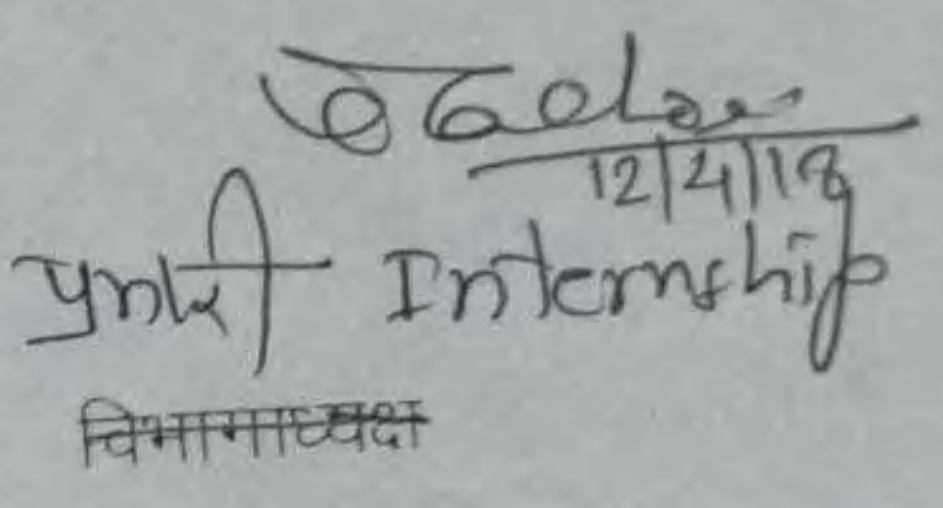 12/4/18
प्रभारी Internship
विभागाध्यक्ष